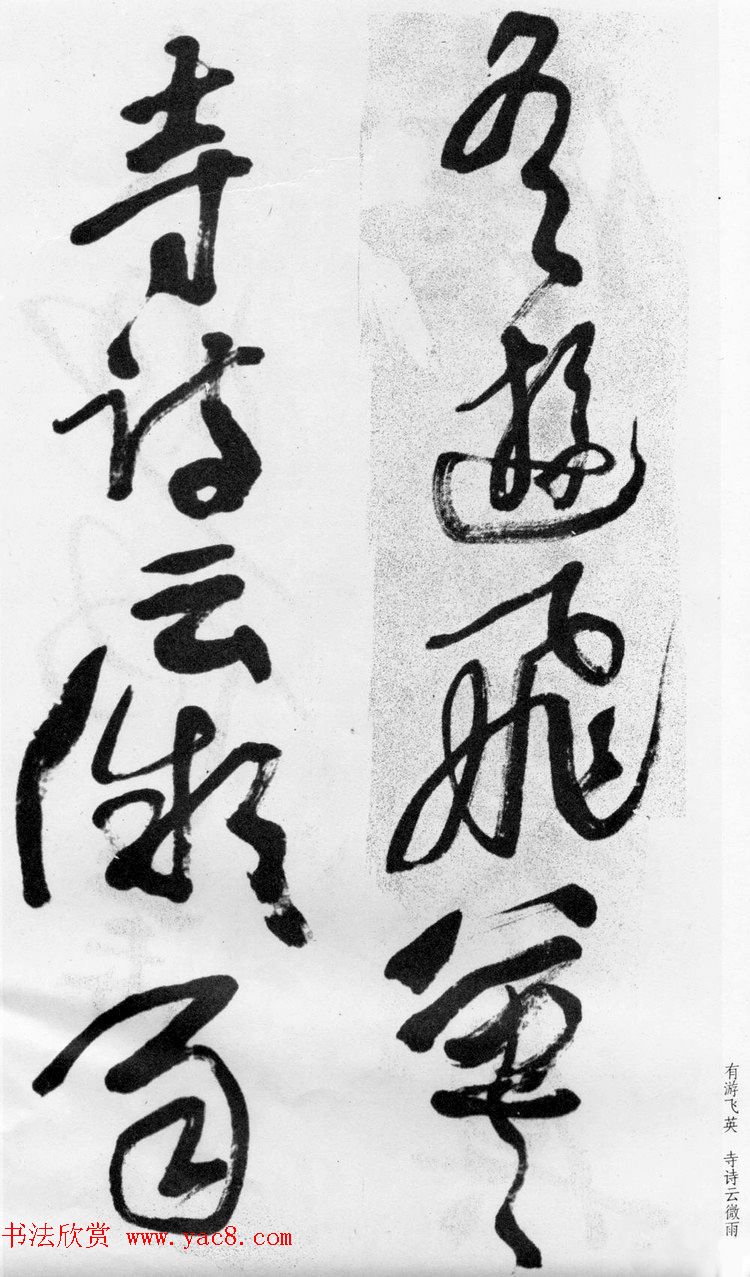 有遊飛英
寺詩云微雨
有游飞英 寺诗云微雨
书法欣赏 www.yac8.com